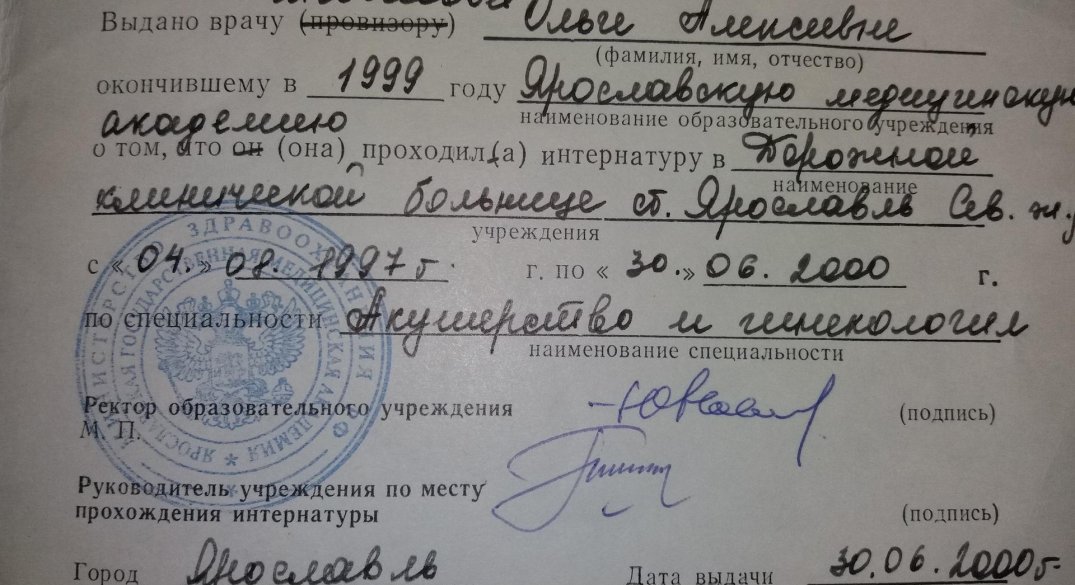 Выдано врачу (провизору) Ольге Алексеевне
(фамилия, имя, отчество)
окончившему в 1999 году Ярославскую медицинскую
академию
наименование образовательного учреждения
о том, что он (она) проходил(а) интернатуру в Дорожной
наименование
клинической больнице ст. Ярославль Сев. ж.
учреждения
с « 04. » 08. 1997 г. г. по « 30. » 06. 2000 г.
по специальности Акушерство и гинекология
наименование специальности
Ректор образовательного учреждения (подпись)
М. П.
Руководитель учреждения по месту
прохождения интернатуры (подпись)
Город Ярославль Дата выдачи 30.06.2000г
МИНИСТЕРСТВО ЗДРАВООХРАНЕНИЯ РФ
ЯРОСЛАВСКАЯ ГОСУДАРСТВЕННАЯ МЕДИЦИНСКАЯ АКАДЕМИЯ